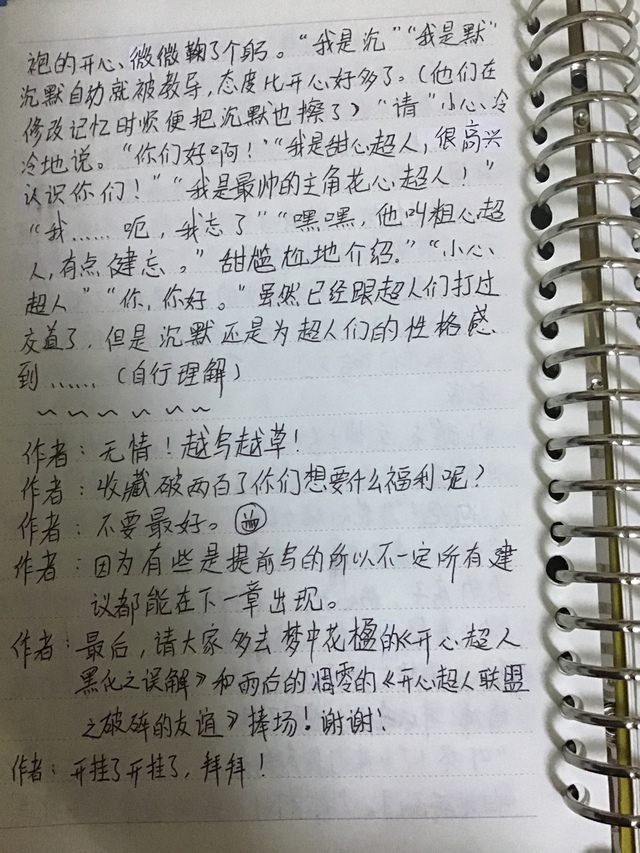 袍的开心、微微鞠了个躬。“我是沉”“我是默”
沉默自动就被教导,态度比开心好多了。(他们在
修改记忆时顺便把沉默也擦了)“请”小心、冷
冷地说。“你们好啊!”“我是甜心超人,很高兴
认识你们!”“我是最帅的主角花心超人!”
“我……呃,我忘了”“嘿嘿,他叫粗心超
人,有点健忘。”甜尴尬地介绍。”“小心、
超人”“你,你好。”虽然已经跟超人们打过
交道了,但是沉默还是为超人们的性格感
到……(自行理解)
~~~~~~
作者:无情!越写越草!
作者:收藏破两百了你们想要什么福利呢?
作者:不要最好。
作者:因为有些是提前写的所以不一定所有建
议都能在下一章出现。
作者:最后,请大家多去梦中花楹的《开心超人
黑化之误解》和雨后的凋零的《开心超人联盟
之破碎的友谊》捧场!谢谢!
作者:开挂了开挂了,拜拜!